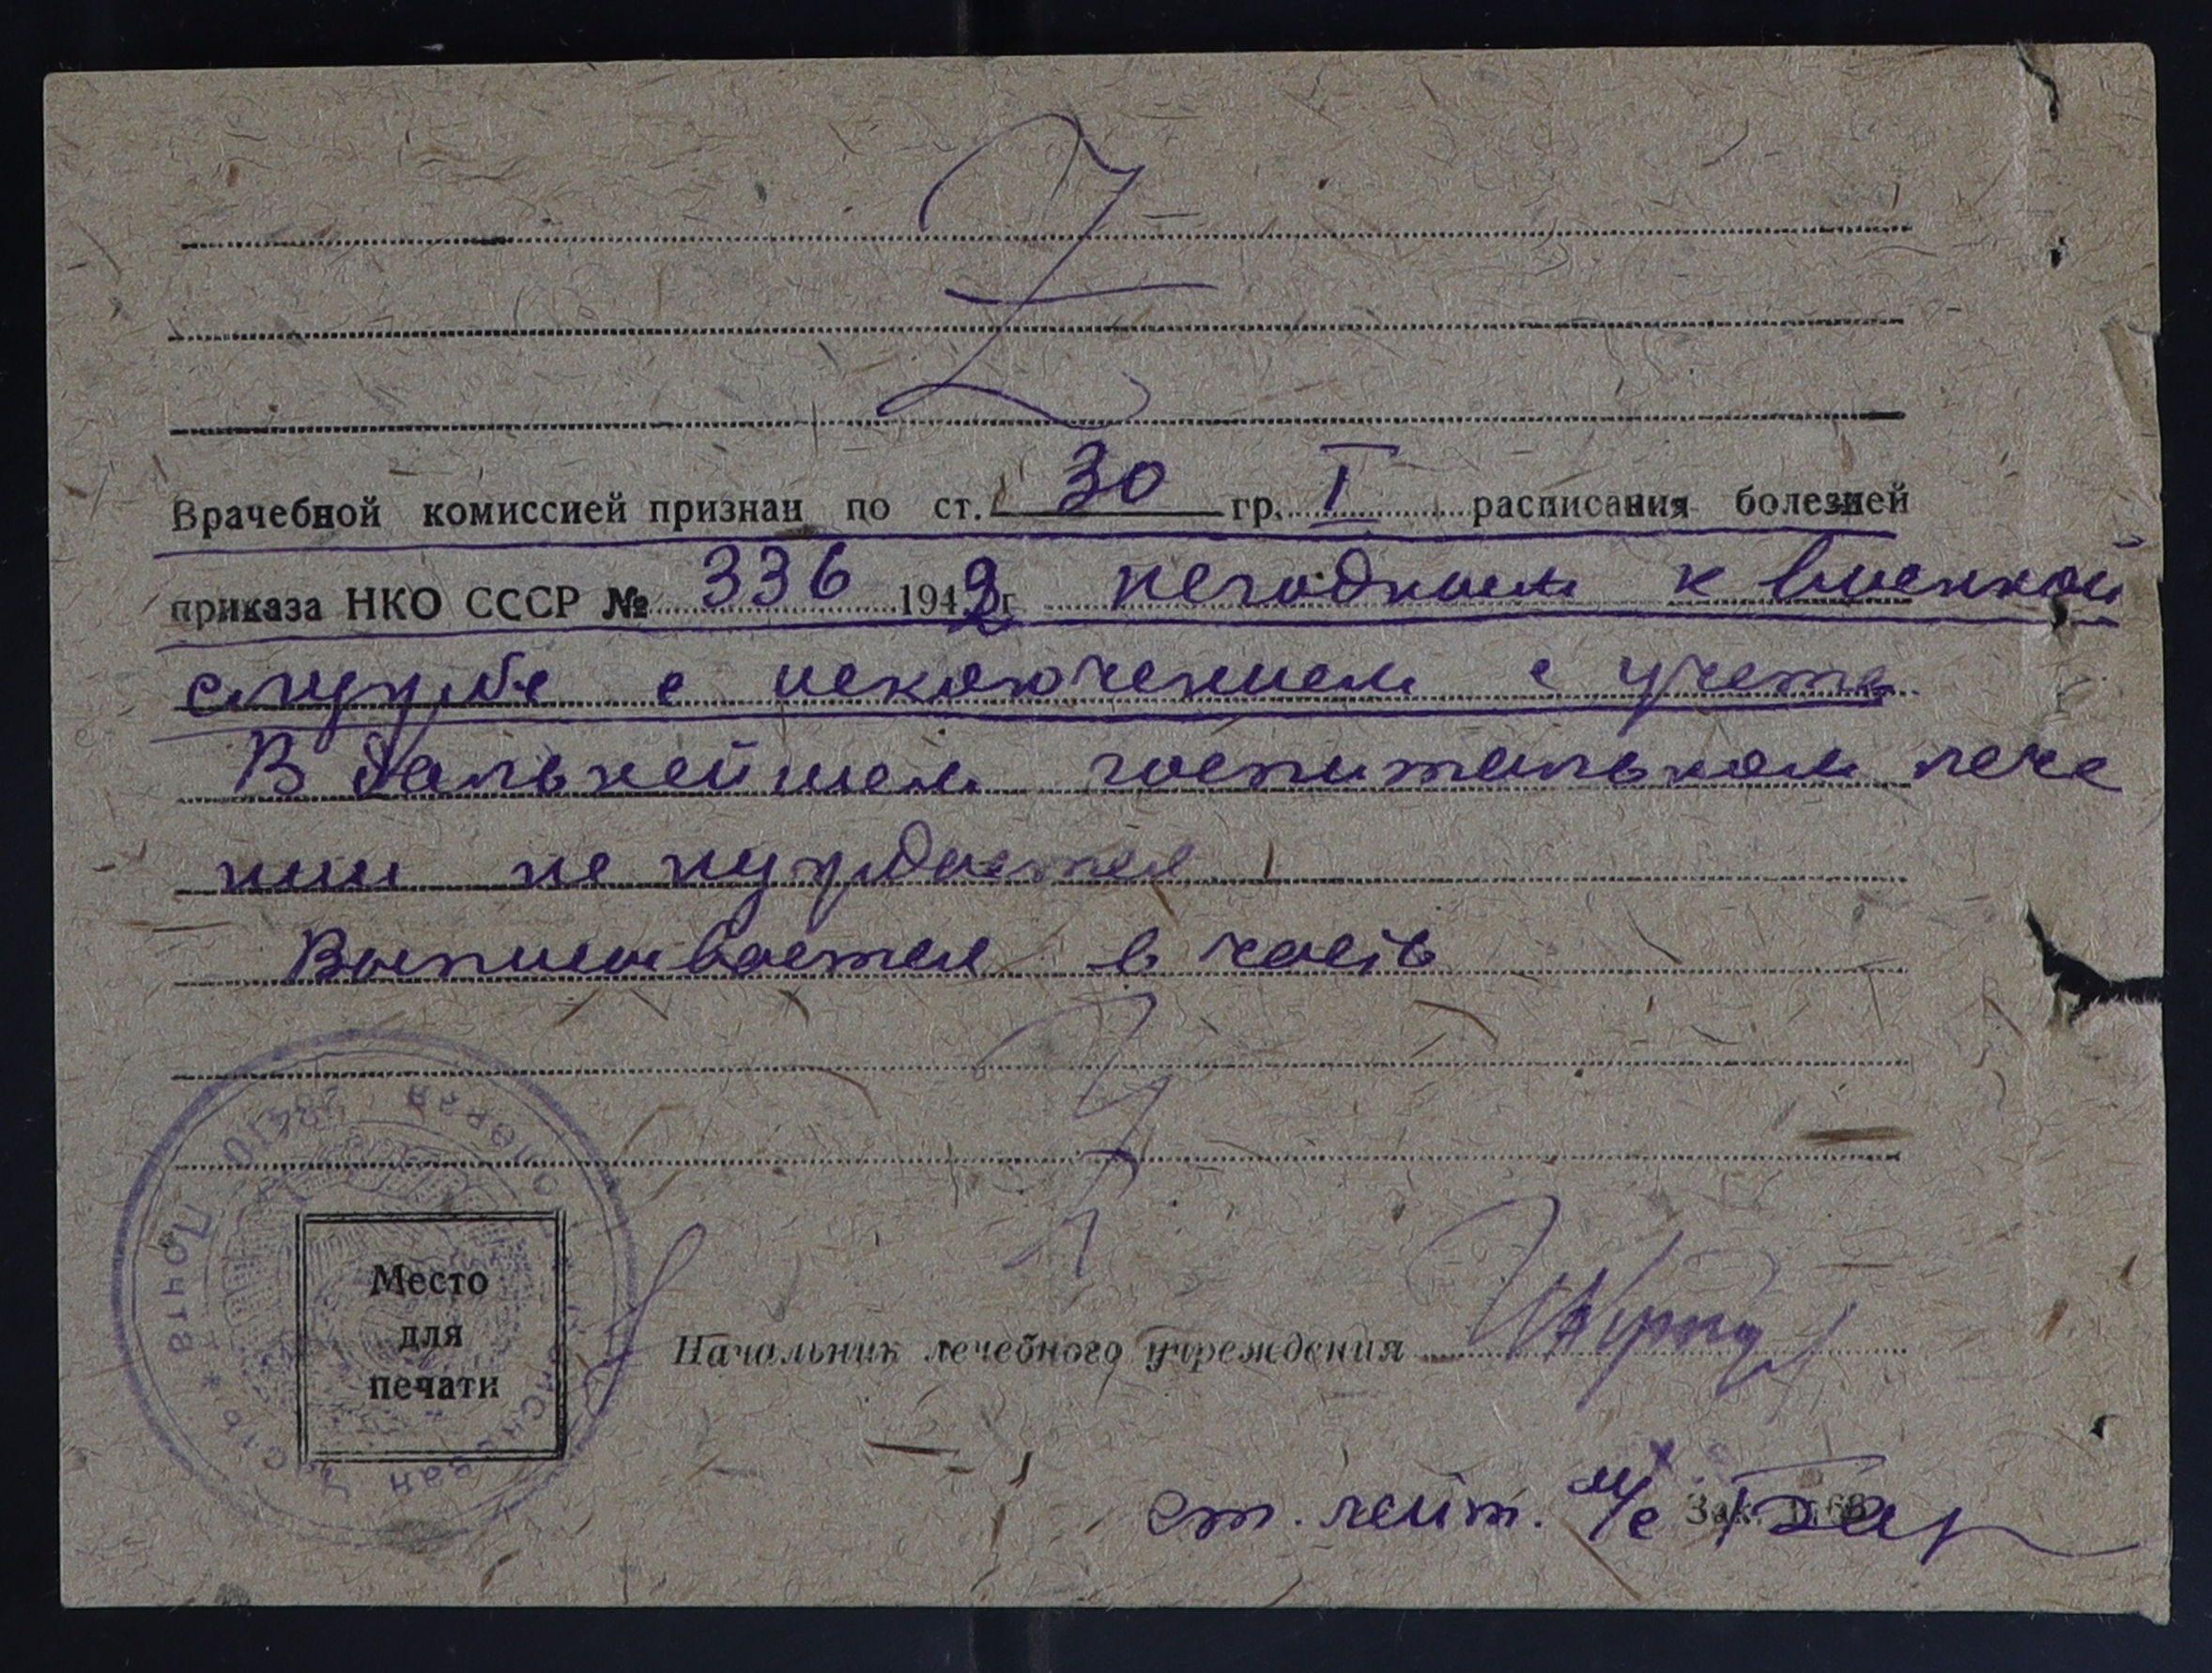 Врачебной комиссией признан по ст. 30 гр. I расписания болезней
приказа НКО СССР № 336 1942 г. негодным к военной
службе с исключением с учета
В дальнейшем госпитальном лече
нии не нуждается
Выписывается в часть
Место
для
печати
Почта
Начальник лечебного учреждения
ст. лейт. м/с
Зак.